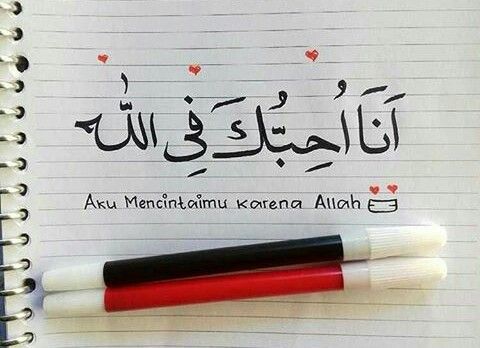 اَنَا اُحِبُّكَ فِي اللّٰه
Aku Mencintaimu karena Allah